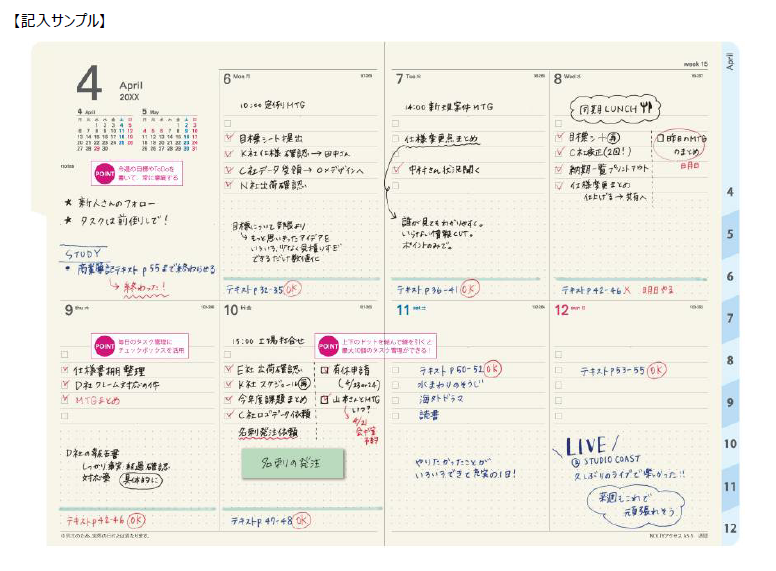 【記入サンプル】
4
April
20XX
4 April
5 May
week 15
April
notes
POINT 今週の目標やToDoを
書いて、常に意識する
★ 新人さんのフォロー
★ タスクは前倒しで!
STUDY
• 商業簿記テキスト p55まで終わらせる
終わった!
6 Mon 月
10:00 定例MTG
目標シート提出
K社仕様確認→田中さん
C社データ受領→○×デザインへ
N社出荷確認
目標について 部長より
もっと思いきったアイデアを
できるだけ数値化
テキストp32-35 OK
7 Tue 火
14:00 新規案件MTG
仕様変更点まとめ
中村さん状況聞く
誰が見てもわかりやすく。
いらない情報CUT。
ポイントのみで。
テキストp36-41 OK
8 Wed 水
同期LUNCH
目標シート 再
C社校正(2回!)
納期一覧プリントアウト
仕様変更まとめ
仕上げる→共有へ
昨日のMTG
のまとめ
明日
テキストp42-46 × 明日やる
9 Thu 木
POINT 毎日のタスク管理に
チェックボックスを活用
仕様書棚整理
D社クレーム対応の件
MTGまとめ
D社の報告書
しっかり事実・経過確認
対応策 具体的に
テキストp42-46 OK
10 Fri 金
15:00 工場打合せ
POINT 上下のドットを結んで線を引くと
最大10個のタスク管理ができる!
E社出荷確認
K社スケジュール 再
今年度課題まとめ
C社ロゴデータ依頼
名刺発注依頼
有休申請
山本さんとMTG
いつ?
4/21
会議室
予約
名刺の発注
テキストp47-48 OK
11 Sat 土
テキストp50-52 OK
水まわりのそうじ
海外ドラマ
読書
やりたかったことが
いろいろできた充実の1日!
12 Sun 日
テキストp53-55 OK
LIVE
@ STUDIO COAST
久しぶりのライブで楽しかった!!
来週もこれで
頑張れそう
4
5
6
7
8
9
10
11
12